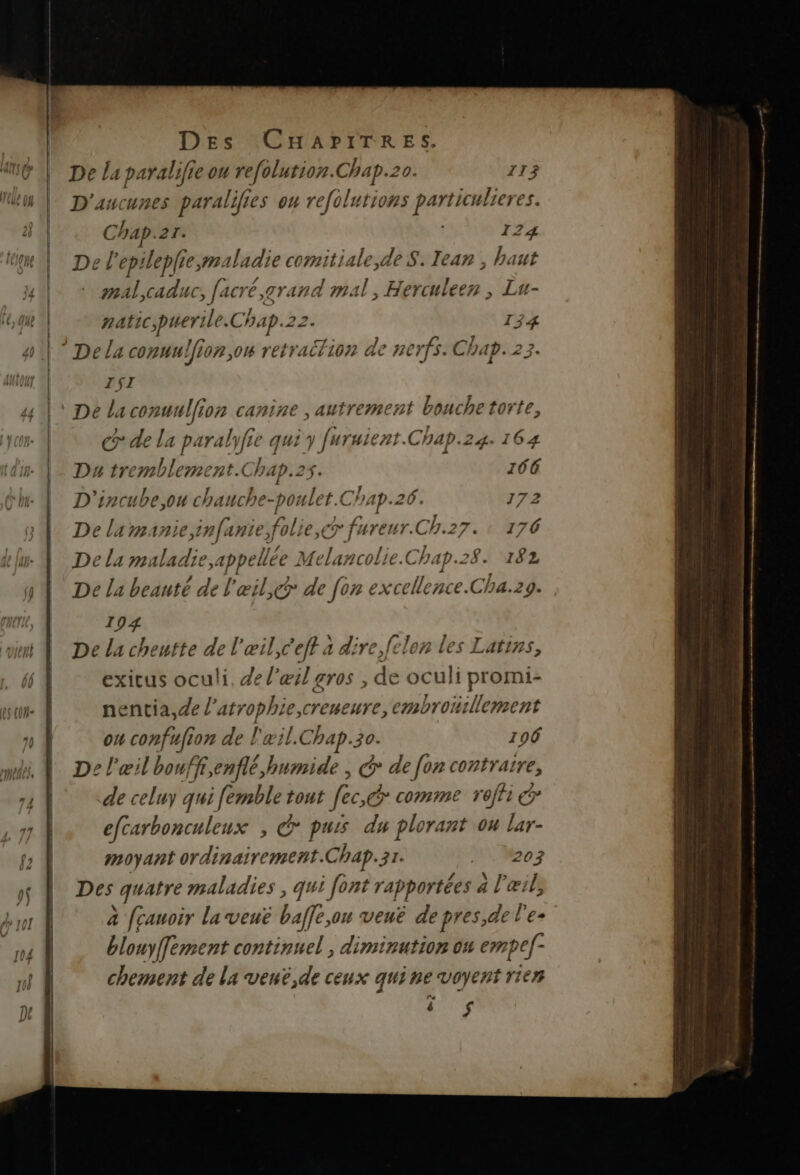 DES CHAPITRES.
De la paraliſie ou reſolution.Chap.20. 113
D'aucunes paraliſies ou reſolutions particulieres.
Chap.21. 124
De l'epilepſie,maladie comitiale,de S. Iean , haut
mal,caduc, ſacré,grand mal , Herculeen , Lu-
natic,puerile.Chap.22. 134
De la conuulſion,ou retraction de nerfs. Chap. 23.
151
De la conuulſion canine , autrement bouche torte,
& de la paralyſie qui y ſuruient.Chap.24. 164
Du tremblement.Chap.25. 166
D'incube,ou chauche-poulet.Chap.26. 172
De la manie,inſanie,folie,& fureur.Ch.27. 176
De la maladie,appellée Melancolie.Chap.28. 182
De la beauté de l'œil,& de ſon excellence.Cha.29.
194
De la cheutte de l'œil,c'eſt à dire,ſelon les Latins,
exitus oculi. de l'œil gros , de oculi promi-
nentia,de l'atrophie,creueure, embroüillement
ou confuſion de l'œil.Chap.30. 196
De l'œil bouffi,enflé,humide , & de ſon contraire,
de celuy qui ſemble tout ſec,& comme roſti &
eſcarbonculeux , & puis du plorant ou lar-
moyant ordinairement.Chap.31. 203
Des quatre maladies , qui ſont rapportées à l'œil,
à ſçauoir la veuë baſſe,ou veuë de pres,de l'e-
blouyſſement continuel , diminution ou empeſ-
chement de la veuë,de ceux qui ne voyent rien
ẽ 5